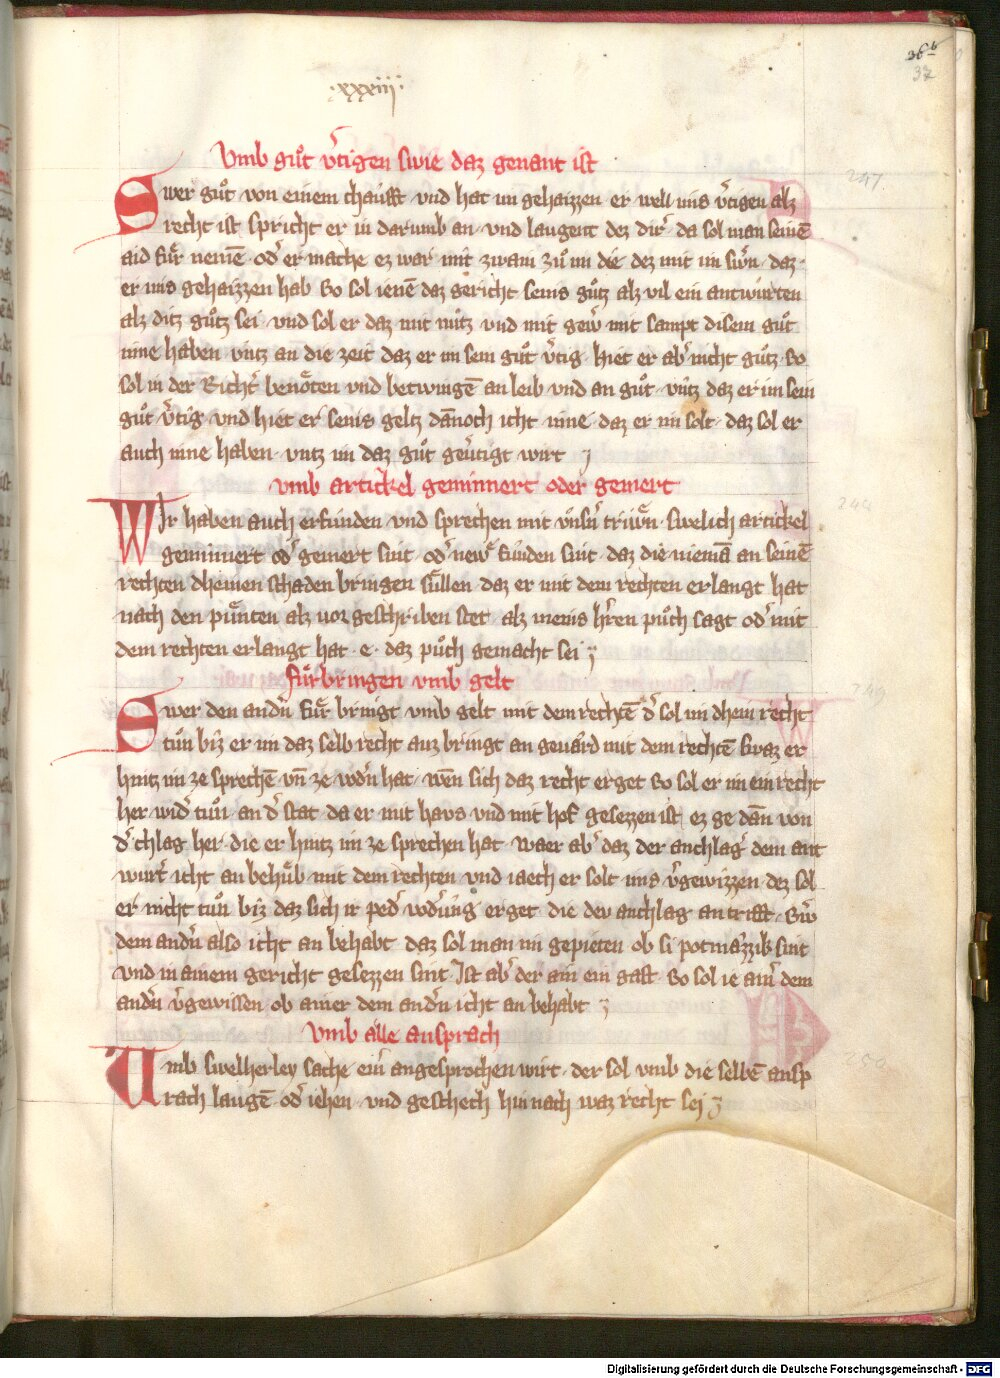 36b
37
·xxxiii·
Vmb guͦt v̾tigen swie daz genant ist
247
Swer guͦt von einem chaufft vnd hat im gehaizzen er well ims v̾tigen alz
recht ist spricht er in darumb an vnd laugent dez dir̾ da sol man seinē
aid fuͤr nemē od̾ er mache ez war mit zwain zuͦ im die dez mit im swͤn daz
er ims gehaizzen hab So sol ienē daz gericht seins guͦtz alz vil ein antwurten
alz ditz guͦtz sei vnd sol er daz mit nutz vnd mit gew̾ mit sampt disem guͦt
inne haben vntz an die zeit daz er im sein guͦt v̾tig hiet er ab̾ nicht guͦtz So
sol in der Richt̾ benoͤten vnd betwingē an leib vnd an guͦt vntz daz er im sein
guͦt v̾tig vnd hiet er seins geltz dānoch icht inne daz er im solt daz sol er
auch inne haben vntz im daz guͦt gev̾tigt wirt
vmb artickel geminnert oder gemert
248
Wir haben auch erfunden vnd sprechen mit vnsn̾ triwn̾ swelich artickel
geminnert od̾ gemert sint od̾ new̾ funden sint daz die niemā an seinē
rechten dheinen schaden bringen suͤllen daz er mit dem rechten erlangt hat
nach den puͤnten alz vor geschriben stet alz meins hr̾ren puͦch sagt od̾ mit
dem rechten erlangt hat e daz puͦch gemacht sei
fuͤrbringen vmb gelt
249
Swer den andn̾ fuͤr bringt vmb gelt mit dem rechtē d̾ sol im dhein recht
tuͦn biz er im daz selb recht auz bringt an geuaͤrd mit dem rechtē swaz er
hintz im ze sprechē vn̄ ze vodn̾ hat wen sich daz recht erget So sol er im ein recht
her wid̾ tuͦn an d̾ stat da er mit haus vnd mit hof gesezzen ist ez ge dān von
d̾ chlag her die er hintz im ze sprechen hat Waer ab̾ daz der anchlag̾ dem ant
wurt̾ icht an behuͤb mit dem rechten vnd iaech er solt ims v̾gewizzen dez sol
er nicht tuͦn biz daz sich ir ped̾ vod̾ung erget die dev anchlag an trifft Sw̾
dem andn̾ also icht an behabt daz sol man im gepieten ob si potmaͤzzib sint
vnd in ainem gericht gesezzen sint Ist ab̾ der ain ein gast So sol ie ain̾ dem
andn̾ v̾gewissen ob ainer dem andn̾ icht an behabt
Vmb alle ansprach
250
Umb swelherley sache ein̾ angesprochen wirt der sol vmb die selbē ansp
rach laugē od̾ iehen vnd geschech hin nach waz recht sei
Digitalisierung gefördert durch die Deutsche Forschungsgemeinschaft - DFG